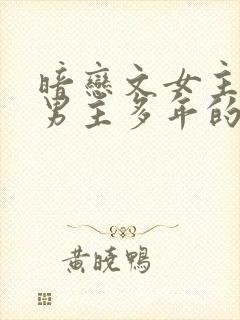 暗戀文女主
男主多年的
黃曉鴨